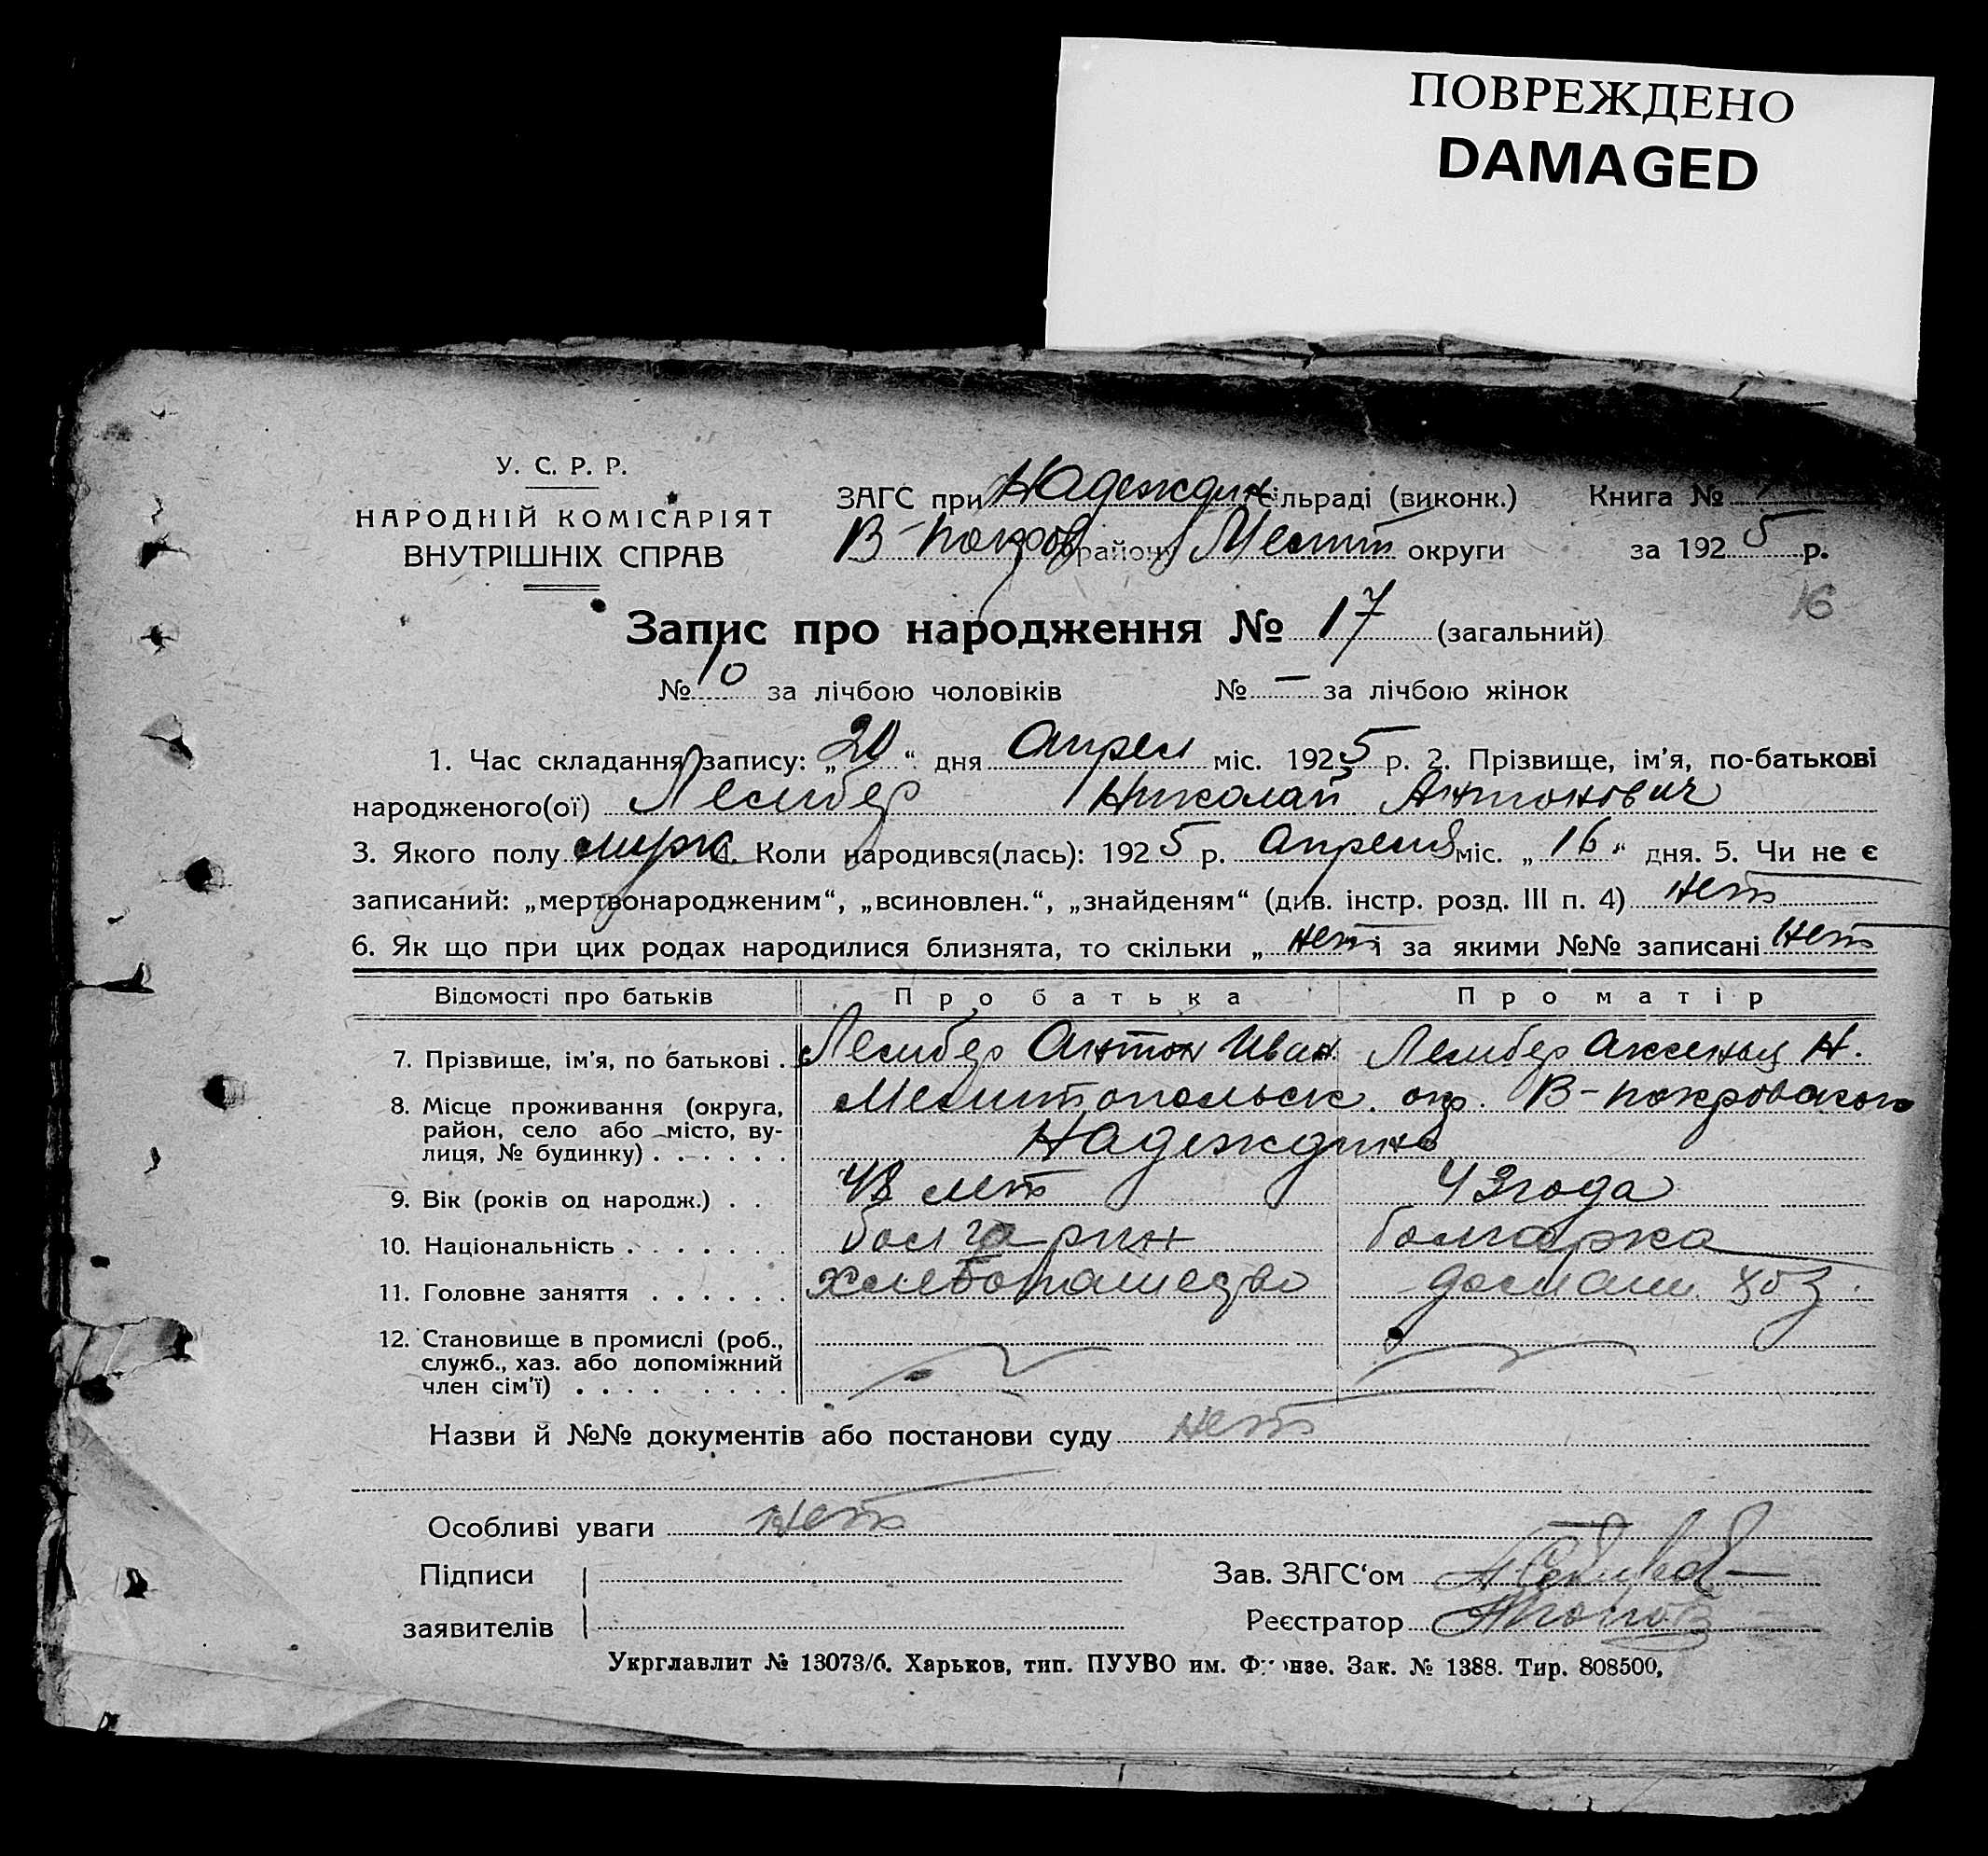 ПОВРЕЖДЕНО
DAMAGED
У. С. Р. Р.
НАРОДНІЙ КОМІСАРІЯТ
ВНУТРІШНІХ СПРАВ
ЗАГС при Надеждин сільраді (виконк.) Книга №
В-покров району Мелит округи за 1925 р.
16
Запис про народження № 17 (загальний)
№ 10 за лічбою чоловіків № — за лічбою жінок
1. Час складання запису: „20“ дня Апрел міс. 1925 р. 2. Прізвище, ім'я, по-батькові
народженого(ої) Лембер Николай Антонович
3. Якого полу мужс 4. Коли народився(лась): 1925 р. Апреля міс. „16“ дня. 5. Чи не є
записаний: „мертвонародженим“, „всиновлен.“, „знайденям“ (див. інстр. розд. III п. 4) нет
6. Як що при цих родах народилися близнята, то скільки „ нет і за якими №№ записані нет
Відомості про батьків Про батька Про матір
7. Прізвище, ім'я, по батькові . Лембер Антон Иван Лембер Аксенья Н.
8. Місце проживання (округа, Мелитопольск. окр. В-покровского
район, село або місто, ву-
лиця, № будинку) . . . . . . Надеждино
9. Вік (років од народж.) . . 48 лет 43 года
10. Національність . . . . . . . болгарин болгарка
11. Головне заняття . . . . . . хлебопашество домаш. хоз.
12. Становище в промислі (роб.,
служб., хаз. або допоміжний
член сім'ї) . . . . . . . . .
Назви й №№ документів або постанови суду нет
Особливі уваги нет
Підписи Зав. ЗАГС‘ом
заявителів Реєстратор
Укрглавлит № 13073/б. Харьков, тип. ПУУВО им. Фрунзе. Зак. № 1388. Тир. 808500,